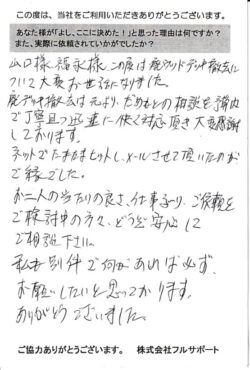 この度は、当社をご利用いただきありがとうございます。
あなた様が「よし、ここに決めた！」と思った理由は何ですか？
また、実際に依頼されていかがでしたか？
山口様、福永様、この度は廃ウッドデッキ撤去に
ついて大変お世話になりました。
廃デッキ撤去は元より、だめもとの相談を予算内
で丁寧且つ迅速に仕て対応頂き大変感謝
しております。
ネットでたまたまヒットし、メールさせて頂いたのが
ご縁でした。
お二人の当たりの良さ、仕事ぶり、ご依頼を
ご検討中の方々、どうぞ安心して
ご相談下さい。
私も別件で何かあれば必ず、
お願いしたいと思っております。
ありがとうございました。
ご協力ありがとうございます。　株式会社フルサポート